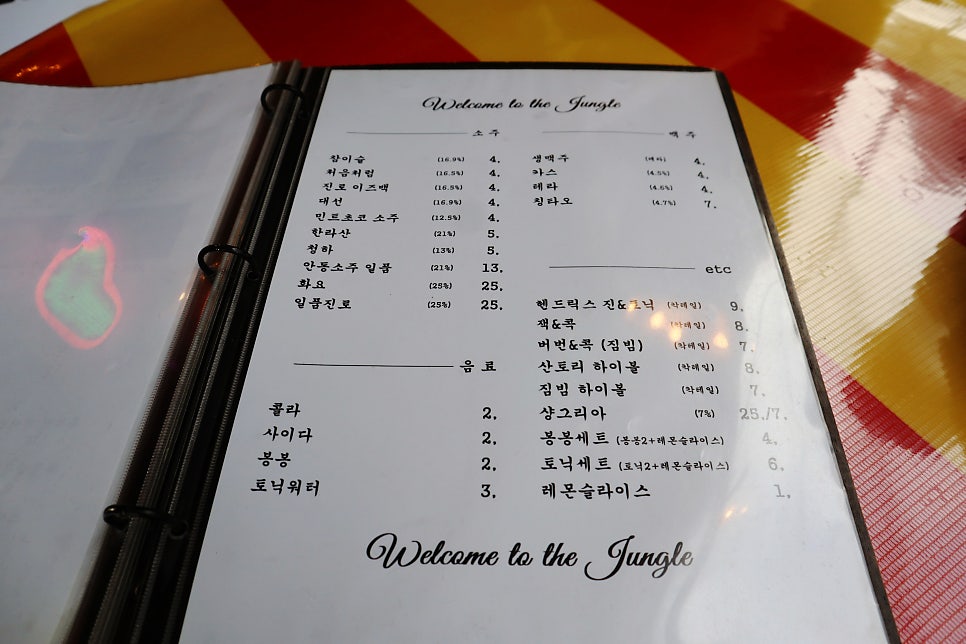 Welcome to the Jungle
소주
참이슬 (16.9%) 4.
처음처럼 (16.5%) 4.
진로 이즈백 (16.5%) 4.
대선 (16.9%) 4.
민트초코 소주 (12.5%) 4.
한라산 (21%) 5.
청하 (13%) 5.
안동소주 일품 (21%) 13.
화요 (25%) 25.
일품진로 (25%) 25.
음료
콜라 2.
사이다 2.
봉봉 2.
토닉워터 3.
맥주
생맥주 (테라) 4.
카스 (4.5%) 4.
테라 (4.6%) 4.
칭타오 (4.7%) 7.
etc
헨드릭스 진&토닉 (칵테일) 9.
잭&콕 (칵테일) 8.
버번&콕 (짐빔) (칵테일) 7.
산토리 하이볼 (칵테일) 8.
짐빔 하이볼 (칵테일) 7.
샹그리아 (7%) 25./7.
봉봉세트 (봉봉2+레몬슬라이스) 4.
토닉세트 (토닉2+레몬슬라이스) 6.
레몬슬라이스 1.
Welcome to the Jungle